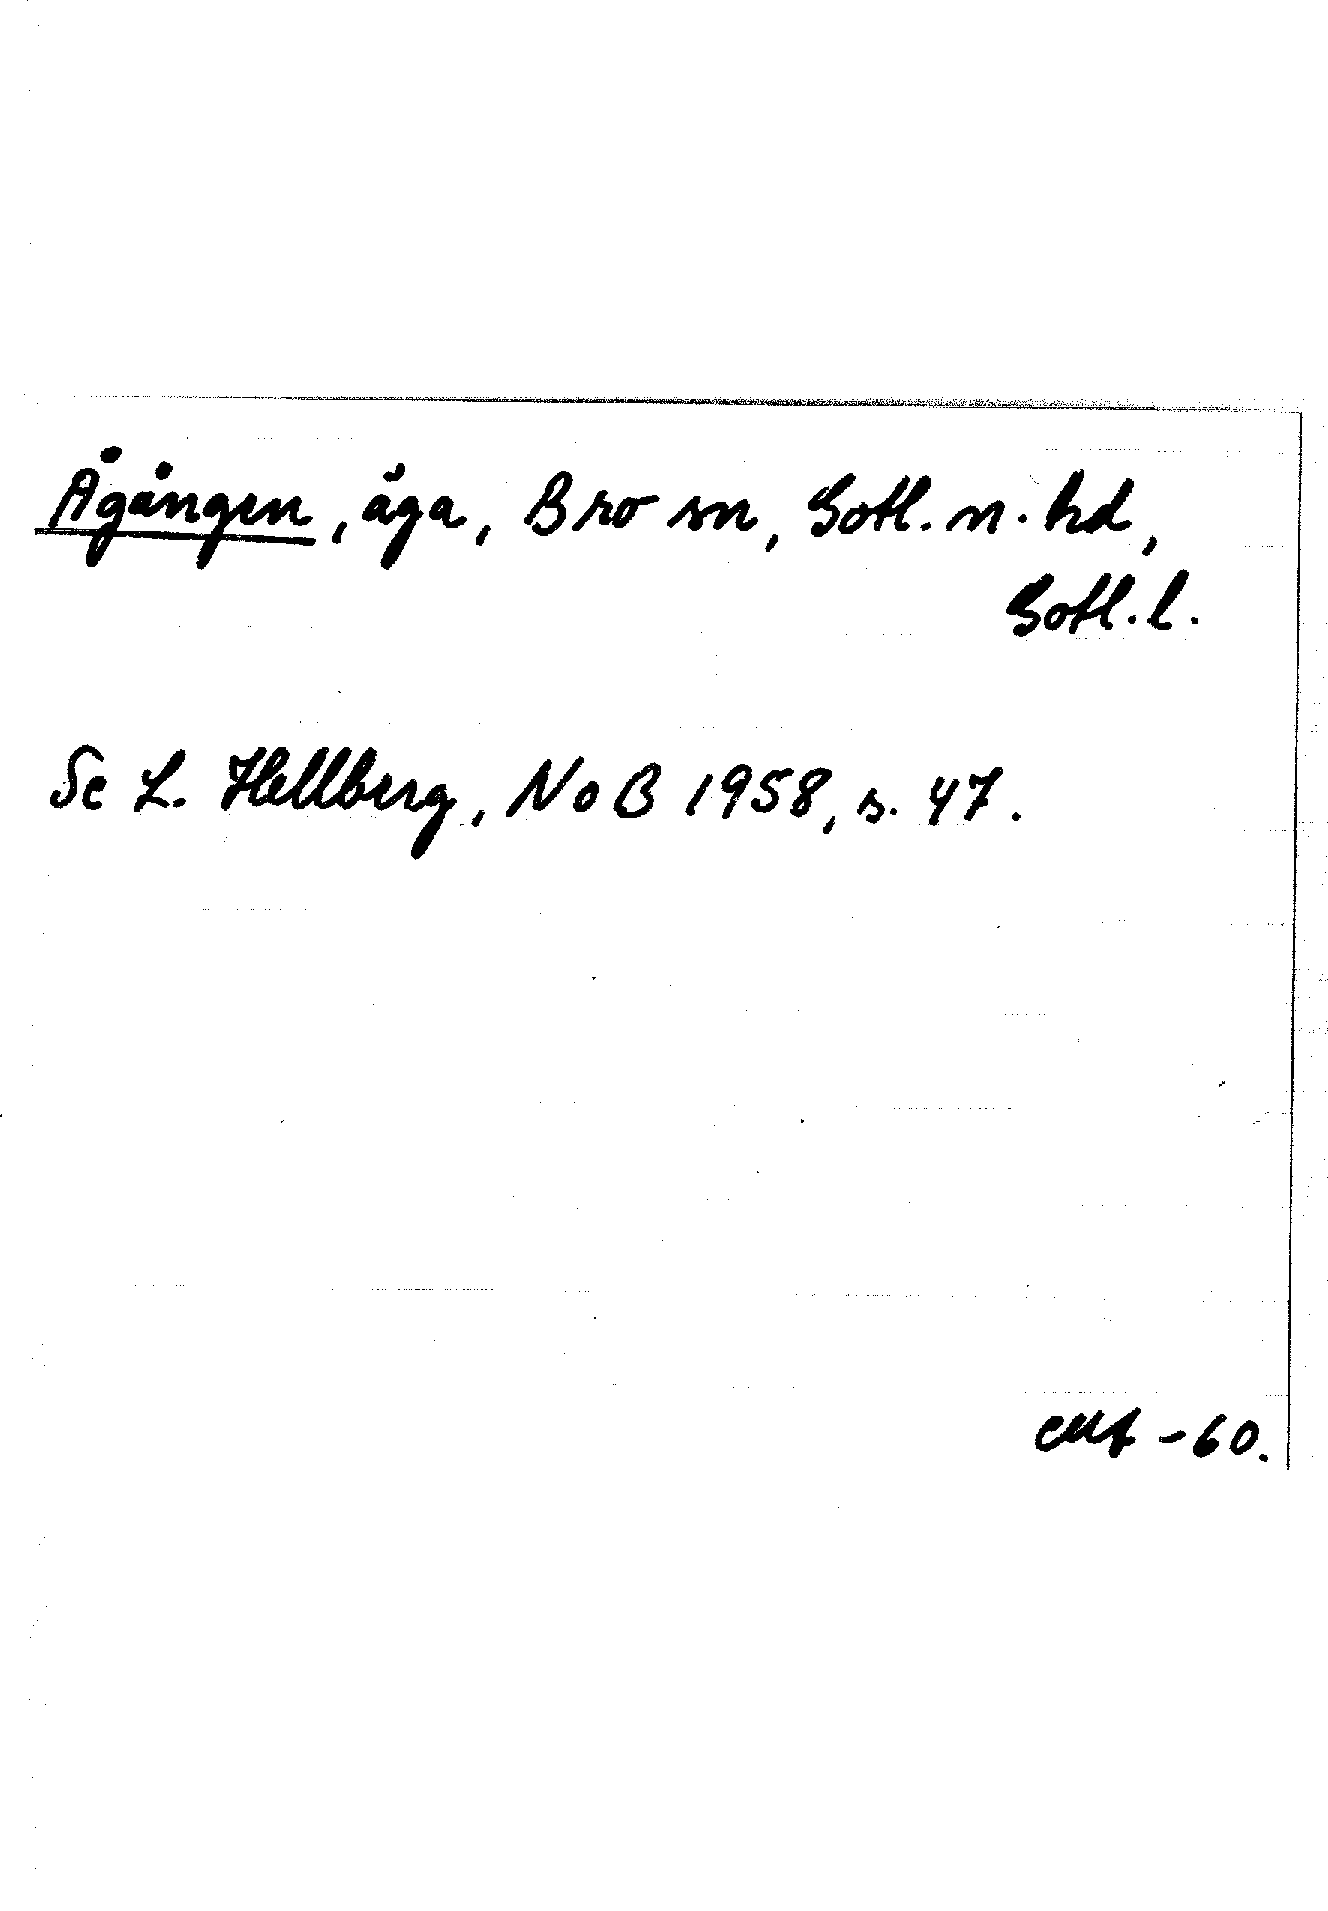 Ågången, äga, Bro sn, Gotl. n. hd,
Gotl. l.
Se L. Hellberg, NoB 1958, s. 47.
-60.